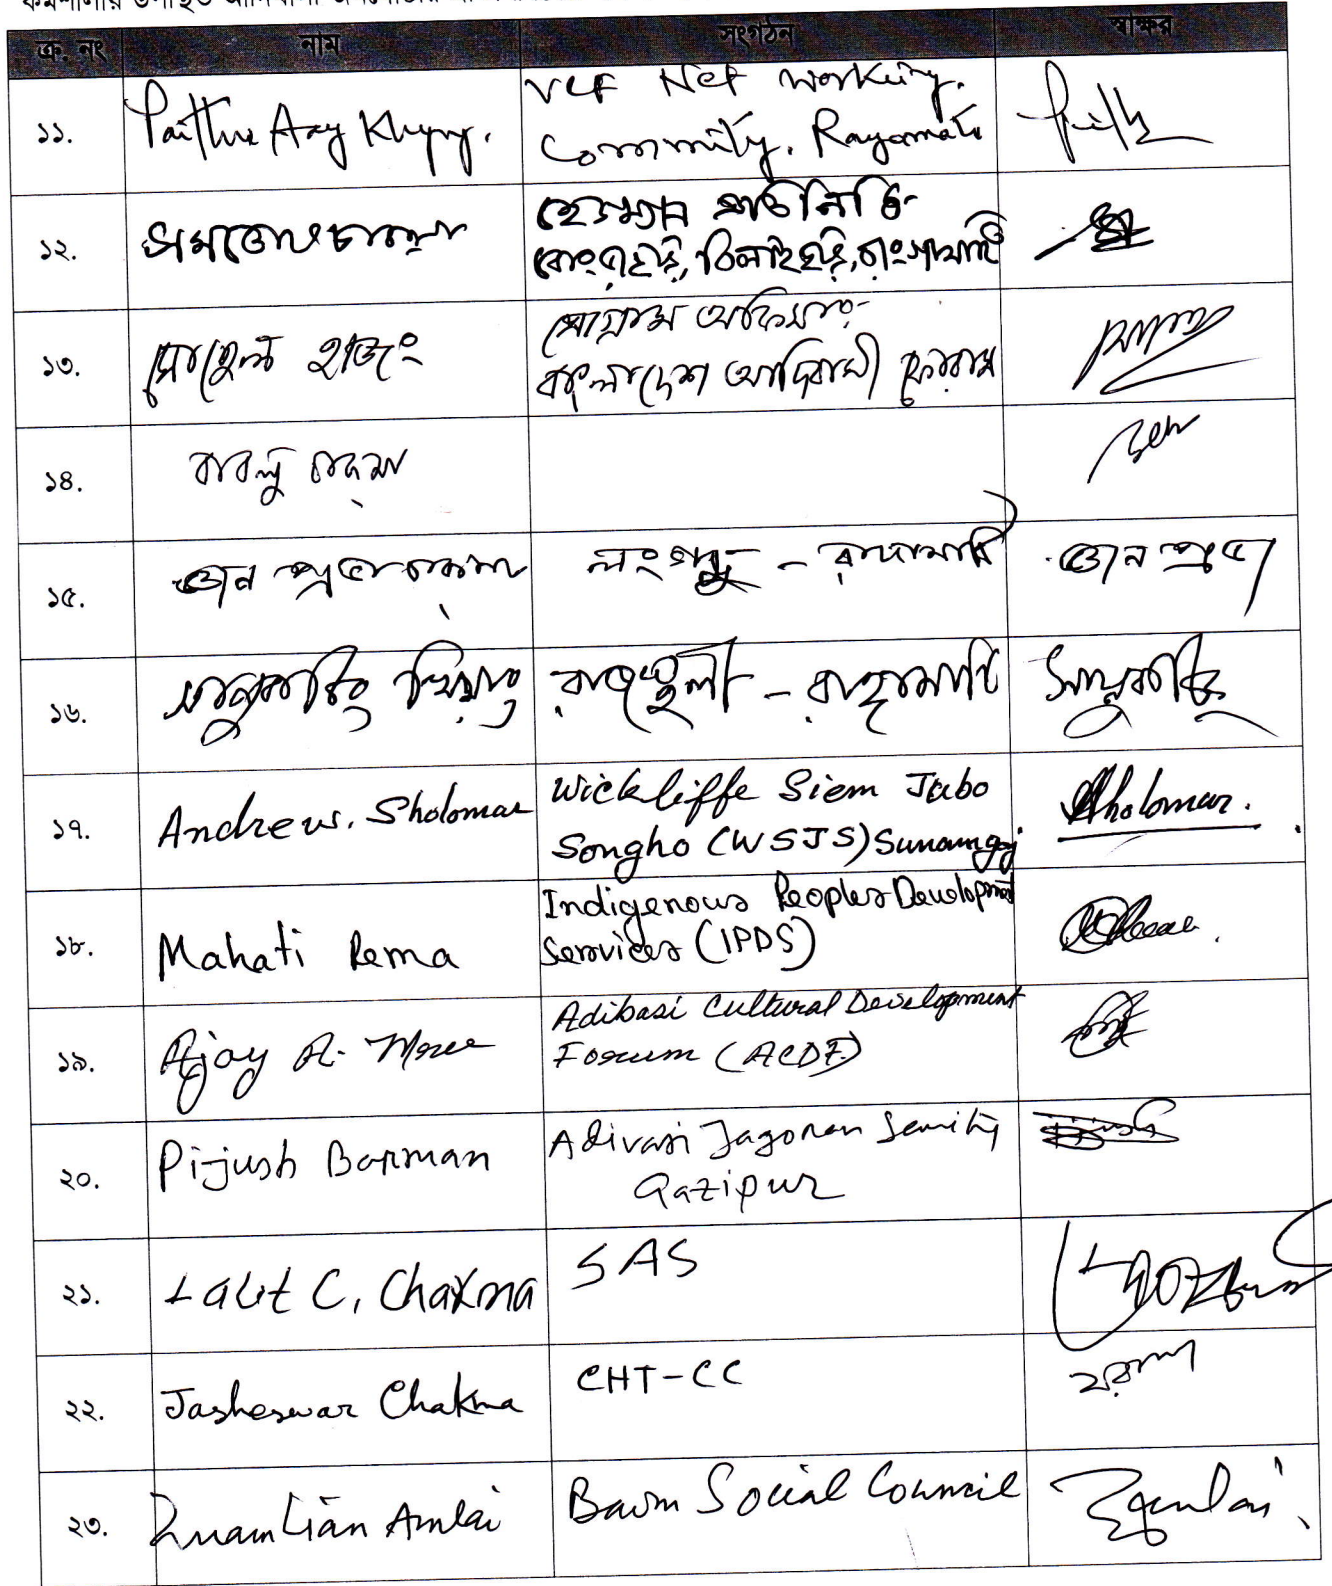 ক্র. নং নাম সংগঠন স্বাক্ষর
১১. Paithu Aay Khyang. VCF Net working.
Commity. Rangamati
১২. চাকমা হেডম্যান প্রতিনিধি
বিলাইছড়ি, রাংগামাটি
১৩. সোহেল হাজং প্রোগ্রাম অফিসার
বাংলাদেশ আদিবাসী ফোরাম
১৪. বাবলু চাকমা
১৫. জ্ঞান প্রভা চাকমা লংগদু - রাঙ্গামাটি জ্ঞান প্রভা
১৬. খিয়াং রাজস্থলী - রাঙ্গামাটি
১৭. Andrew. Sholomar Wickliffe Siem Jabo Sholomar.
Songho (WSJS) Sunamgonj
১৮. Mahati Rema Indigenous Peoples Development
Services (IPDS)
১৯. Ajoy A. Mree Adibasi Cultural Development
Forum (ACDF)
২০. Pijush Barman Adivasi Jagoran Samity
Gazipur
২১. Lalit C. Chakma SAS
২২. Jasheswar Chakma CHT-CC
২৩. Zuamlian Amlai Bawm Social Council